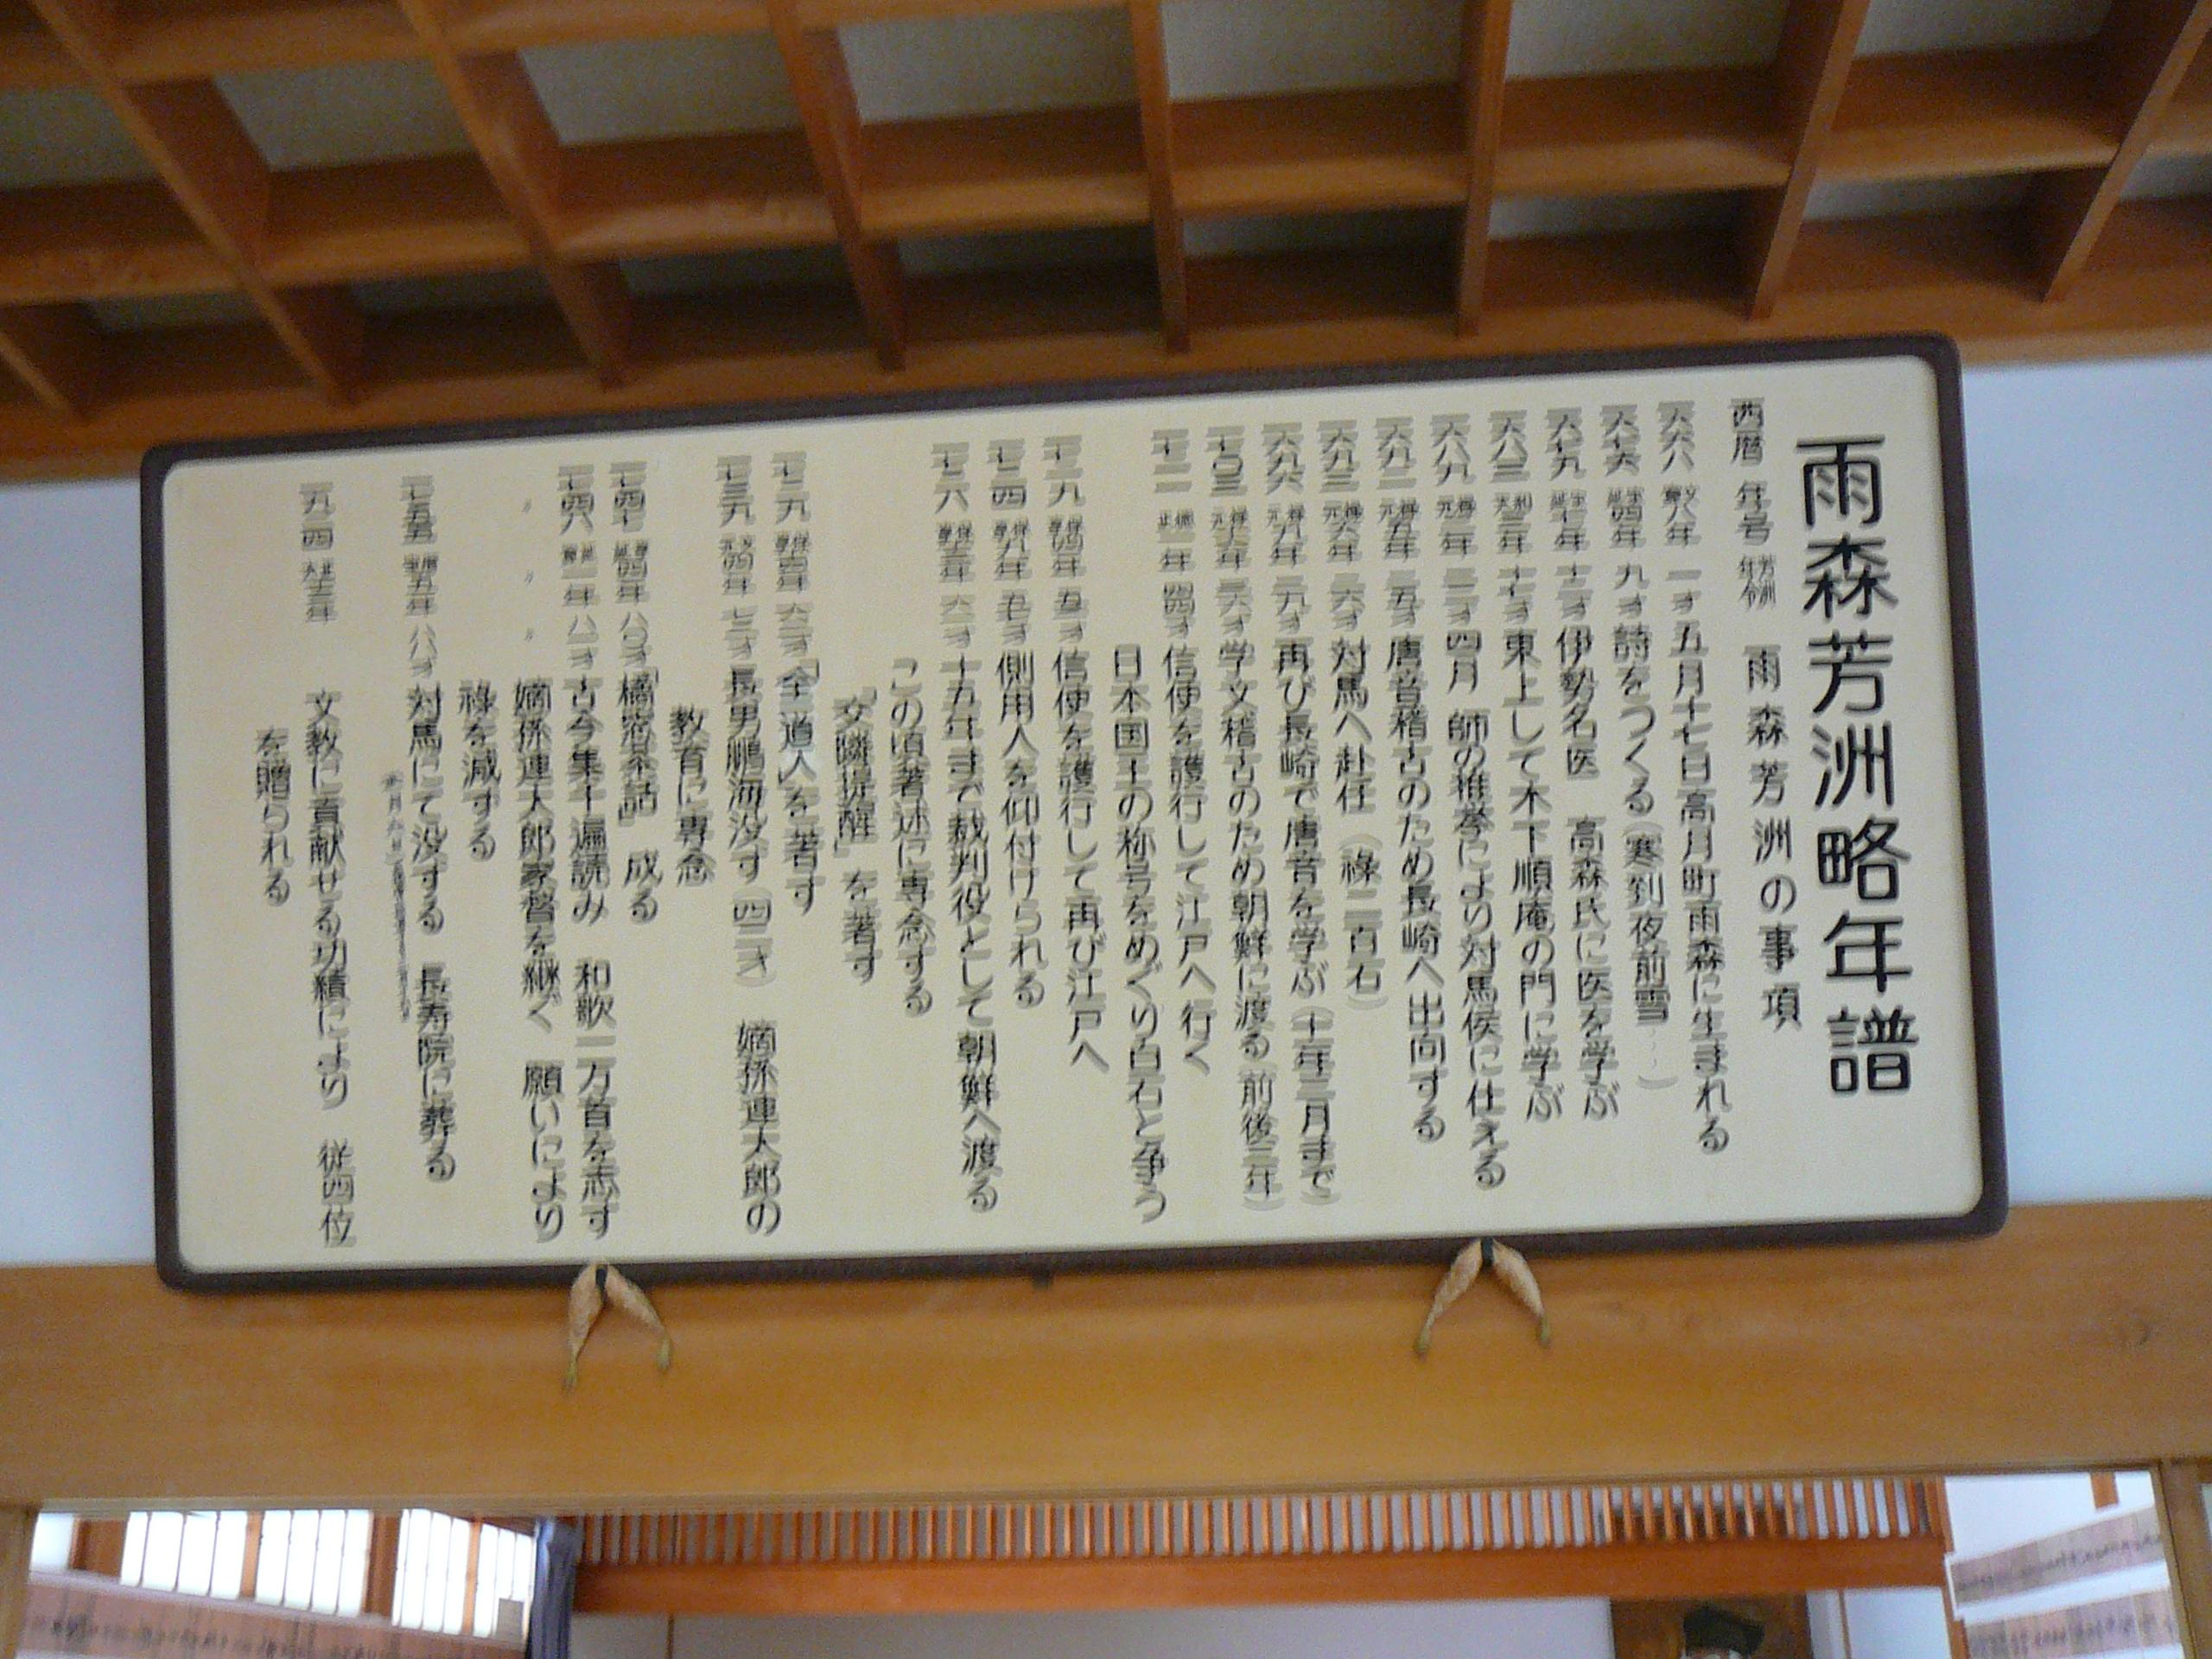 雨森芳洲略年譜
西暦 年号 芳洲年令 雨森芳洲の事項
一六六八 寛文八年 一才 五月十七日高月町雨森に生まれる
一六七六 延宝四年 九才 詩をつくる(寒到夜前雪・・・)
一六七九 延宝七年 十二才 伊勢名医 高森氏に医を学ぶ
一六八三 天和三年 十七才 東上して木下順庵の門に学ぶ
一六八九 元禄二年 二二才 四月 師の推挙により対馬侯に仕える
一六九二 元禄五年 二五才 唐音稽古のため長崎へ出向する
一六九三 元禄六年 二六才 対馬へ赴任(禄二百石)
一六九六 元禄九年 二九才 再び長崎で唐音を学ぶ(十年三月まで)
一七〇三 元禄十六年 三六才 学文稽古のため朝鮮に渡る(前後三年)
一七一一 正徳一年 四四才 信使を護行して江戸へ行く
日本国王の称号をめぐり白石と争う
一七一九 享保四年 五二才 信使を護行して再び江戸へ
一七二四 享保九年 五七才 側用人を仰付けられる
一七二八 享保十三年 六一才 十五年まで裁判役として朝鮮へ渡る
この頃著述に専念する
「交隣提醒」を著す
一七二九 享保十四年 六二才 「全一道人」を著す
一七三九 元文四年 七二才 長男鵬海没す(四二才) 嫡孫連太郎の
教育に専念
一七四七 延享四年 八〇才 「橘窓茶話」成る
一七四八 寛延一年 八一才 古今集千遍読み 和歌一万首を志す
〃 〃 〃 嫡孫連太郎家督を継ぐ 願いにより
禄を減ずる
一七五五 宝暦五年 八八才 対馬にて没する 長寿院に葬る
一九二四 大正十三年 文教に貢献せる功績により 従四位
を贈られる